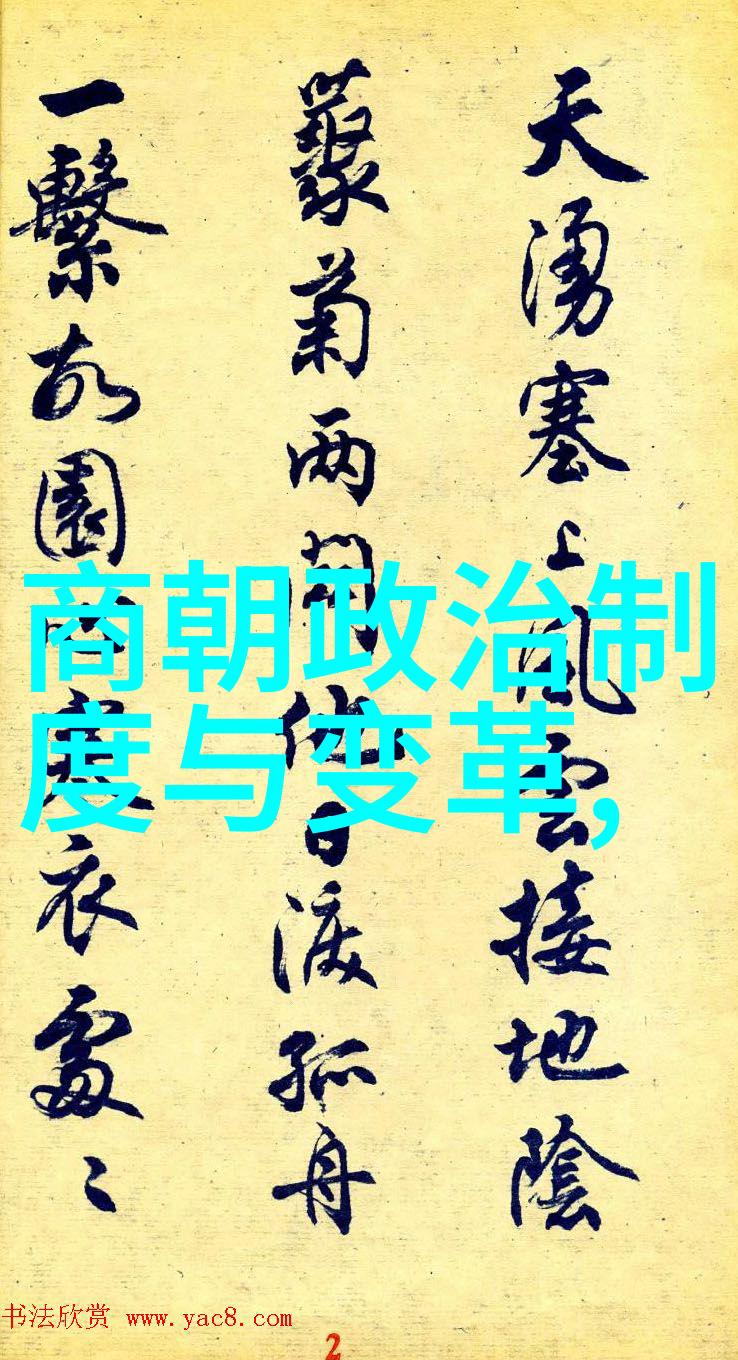 天湧塞上風雲接地陰
叢菊两開他日淚孤舟
一繫故園心寒衣處〻
商朝政治制
度与变革,
书法欣赏 www.yac8.com
2